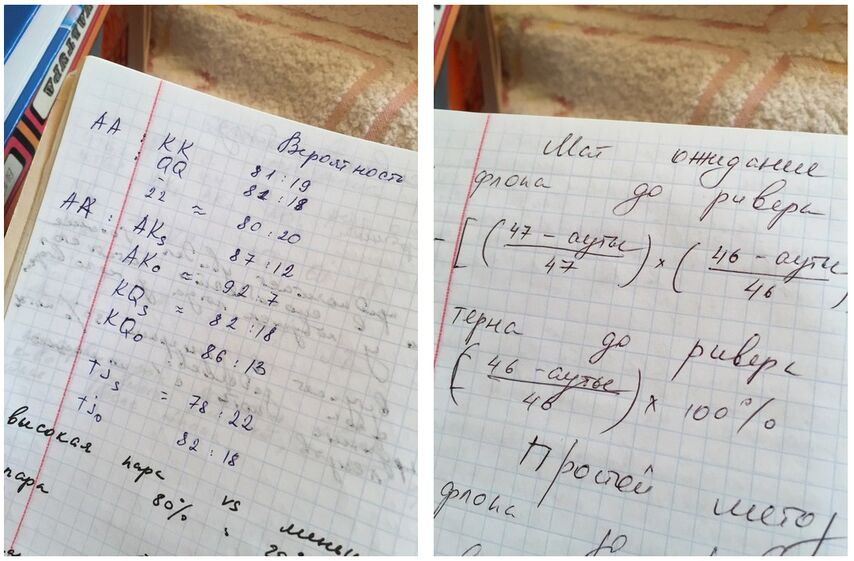 АДТУРА
Вероятность
AA : KK 81:19
: QQ 82:18
22 ≈ 80:20
AA : AKs 87:12
AKo ≈ 92:7
KQs ≈ 82:18
KQo 86:13
TJs = 78:22
TJo 82:18
высокая пара vs меньш
пара 80%
Мат ожидание
флопа до ривера
- [ ( 47 - ауты / 47 ) × ( 46 - ауты / 46 )
терна до ривера
( 46 - ауты / 46 ) × 100%
Простой метод
флопа до